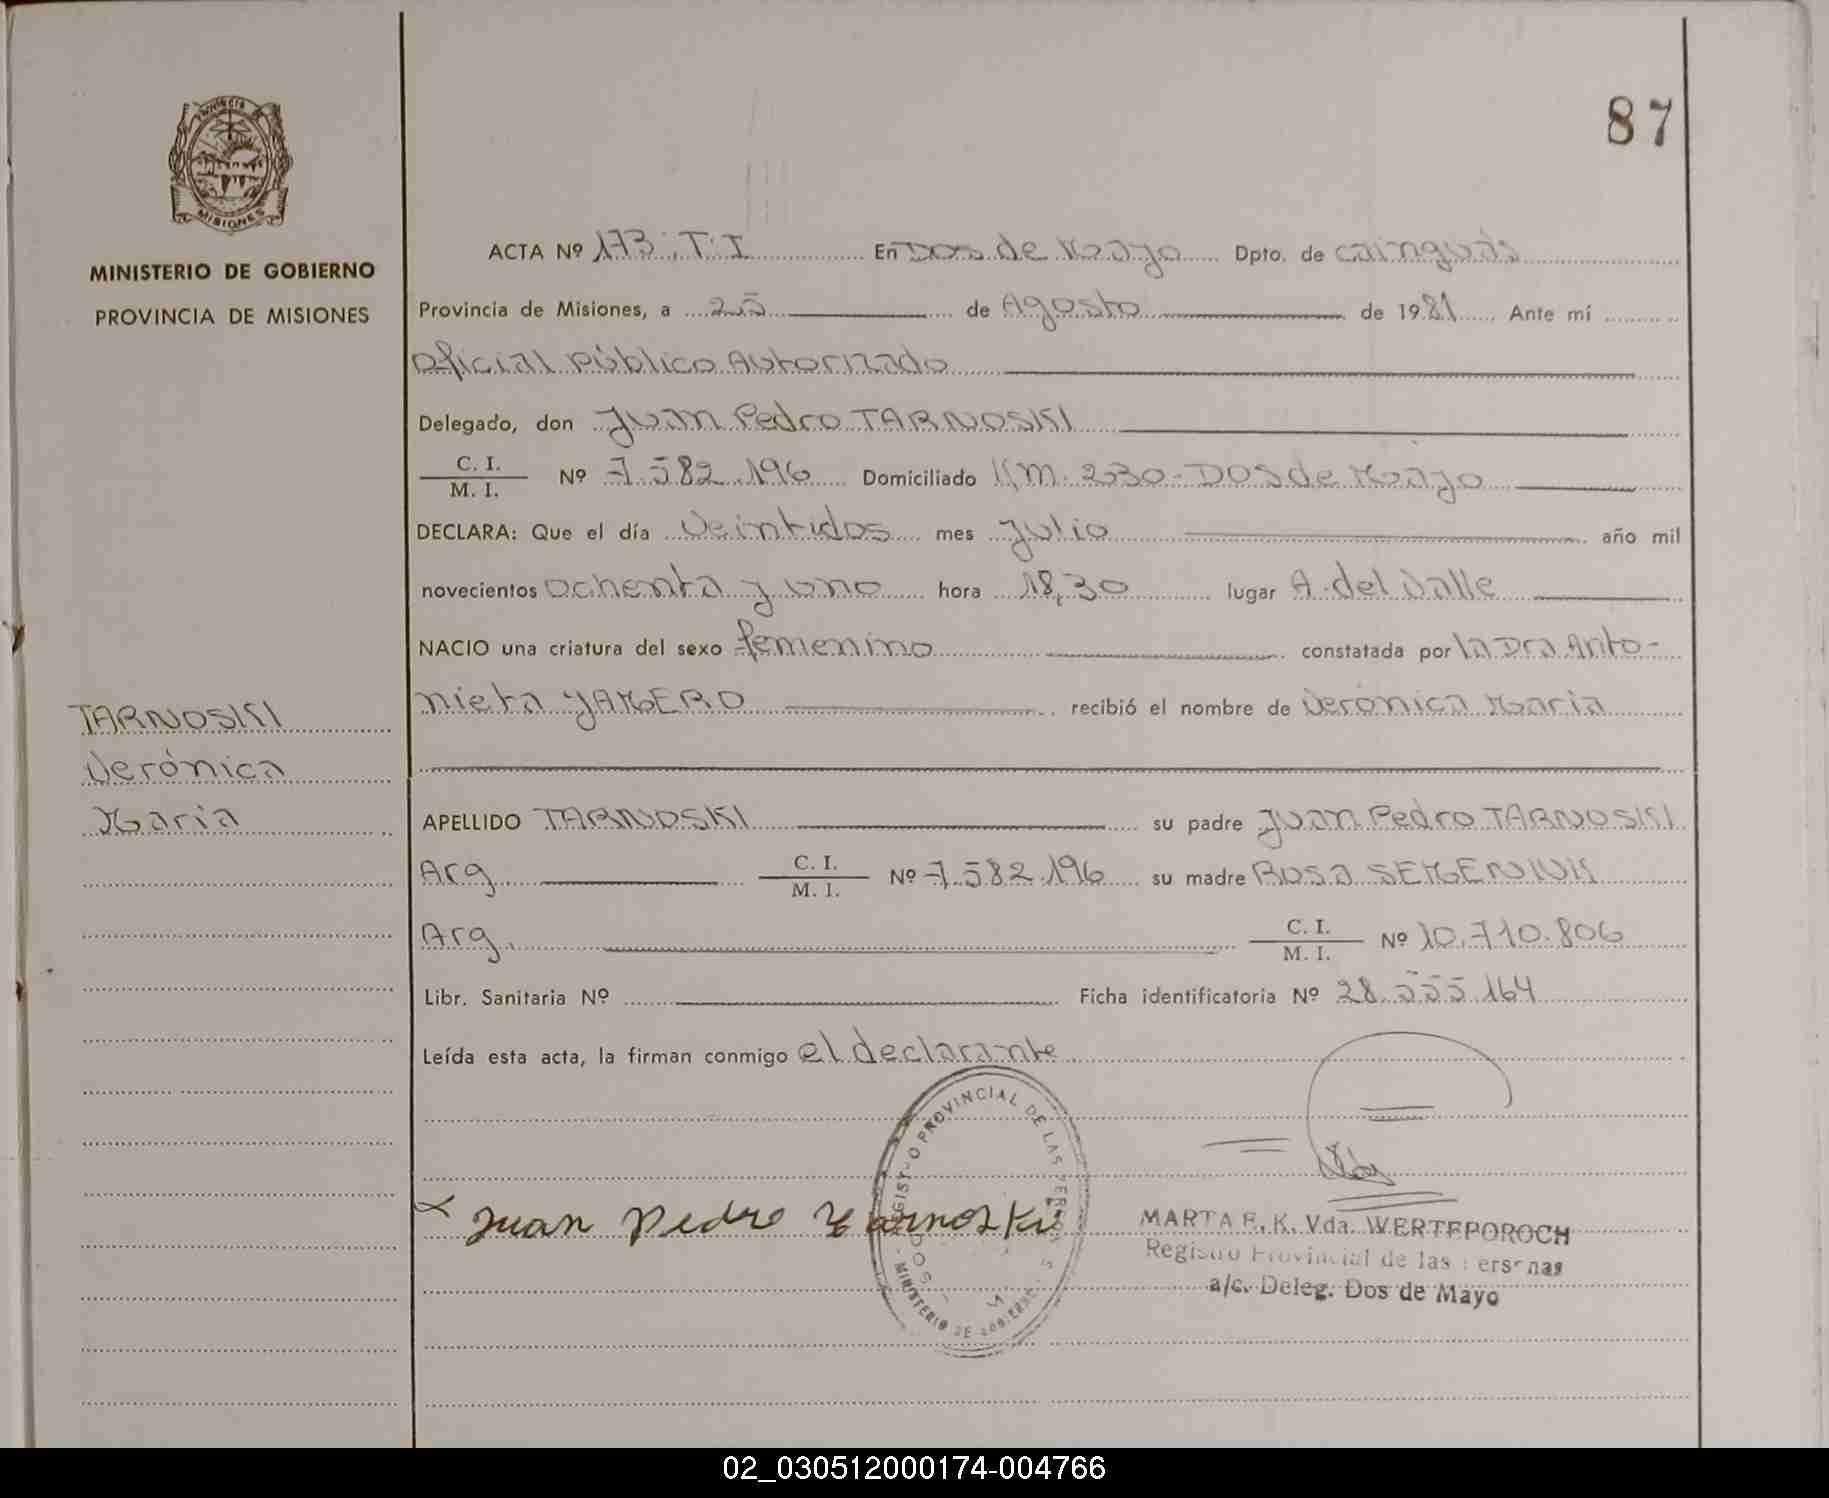 87
Provincia
MISIONES
MINISTERIO DE GOBIERNO
PROVINCIA DE MISIONES
ACTA Nº 173, T: I En DOS de Mayo Dpto. de cainguás
Provincia de Misiones, a 25 de Agosto de 1981 Ante mí
Oficial Público Autorizado
Delegado, don Juan Pedro TARNOSKI
C. I.
M. I. Nº 7.582.196 Domiciliado Km. 230 - DOS de Mayo
DECLARA: Que el día Veintidos mes Julio año mil
novecientos ochenta y uno hora 18,30 lugar A. del Valle
NACIO una criatura del sexo femenino constatada por la Dra Anto-
nieta recibió el nombre de Verónica Maria
TARNOSKI
Verónica
Maria
APELLIDO TARNOSKI su padre Juan Pedro TARNOSKI
Arg C. I.
M. I. Nº 7.582.196 su madre ROSA SEMENIUK
Arg. C. I.
M. I. Nº 10.710.806
Libr. Sanitaria Nº Ficha identificatoria Nº 28.555.164
Leída esta acta, la firman conmigo el declarante
REGISTRO PROVINCIAL DE LAS PERSONAS
MINISTERIO DE GOBIERNO
Juan Pedro Tarnoski
MARTA E. K. Vda. WERTEPOROCH
Registro Provincial de las Personas
a/c. Deleg. Dos de Mayo
02_030512000174-004766